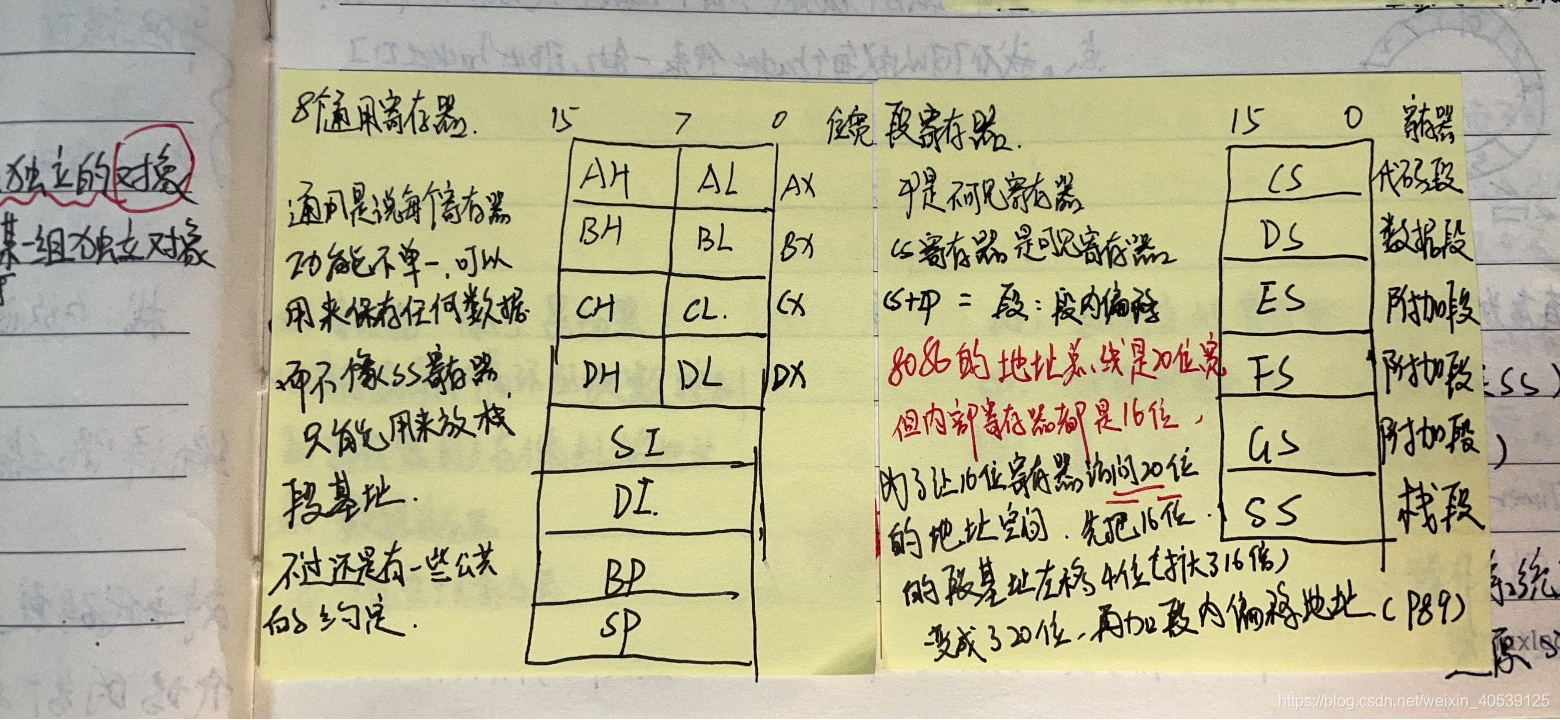 独立的对象
某一组独立对象
8个通用寄存器.
15 7 0 位宽
通用是说每个寄存器
功能不单一,可以
用来保存任何数据
而不像SS寄存器,
只能用来放栈
段基址.
不过还是有一些公共
的约定.
AH AL AX
BH BL BX
CH CL. CX
DH DL DX
SI
DI.
BP
SP
段寄存器.
15 0 寄存器
IP是不可见寄存器
CS寄存器是可见寄存器
CS+IP = 段:段内偏移
8086的地址总线是20位宽
但内部寄存器都是16位,
为了让16位寄存器访问20位
的地址空间.先把16位.
的段基址左移4位(扩大了16倍)
变成了20位,再加段内偏移地址(P89)
CS 代码段
DS 数据段
ES 附加段
FS 附加段
GS 附加段
SS 栈段
SS)
系统
原
https://blog.csdn.net/weixin_40539125